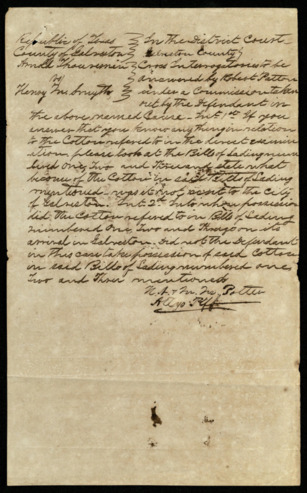 Republic of Texas } In the District Court
County of Galveston } Galveston County
Cross Interrogatories to be
vs } answered by Robert Patton
Henry M. Smyth } under a Commission taken
out by the Defendant in
the above named Cause. Int. 1st If you
answer that you know anything in relation
to the Cotton refered to in the direct exami-
nation, please look at the Bills of Lading num
bered One, Two and Three and state what
become of the Cotton in said Bills of Lading
mentioned was it not sent to the City
of Galveston. Int. 2d Into whose possession
did the Cotton refered to in Bills of Lading
numbered One Two and Three on its
arrival in Galveston. Did not the Defendant
in this case take possession of said Cotton
in said Bills of Lading numbered one
Two and Three mentioned
N. H. & M. M. Potter
Attys Plff